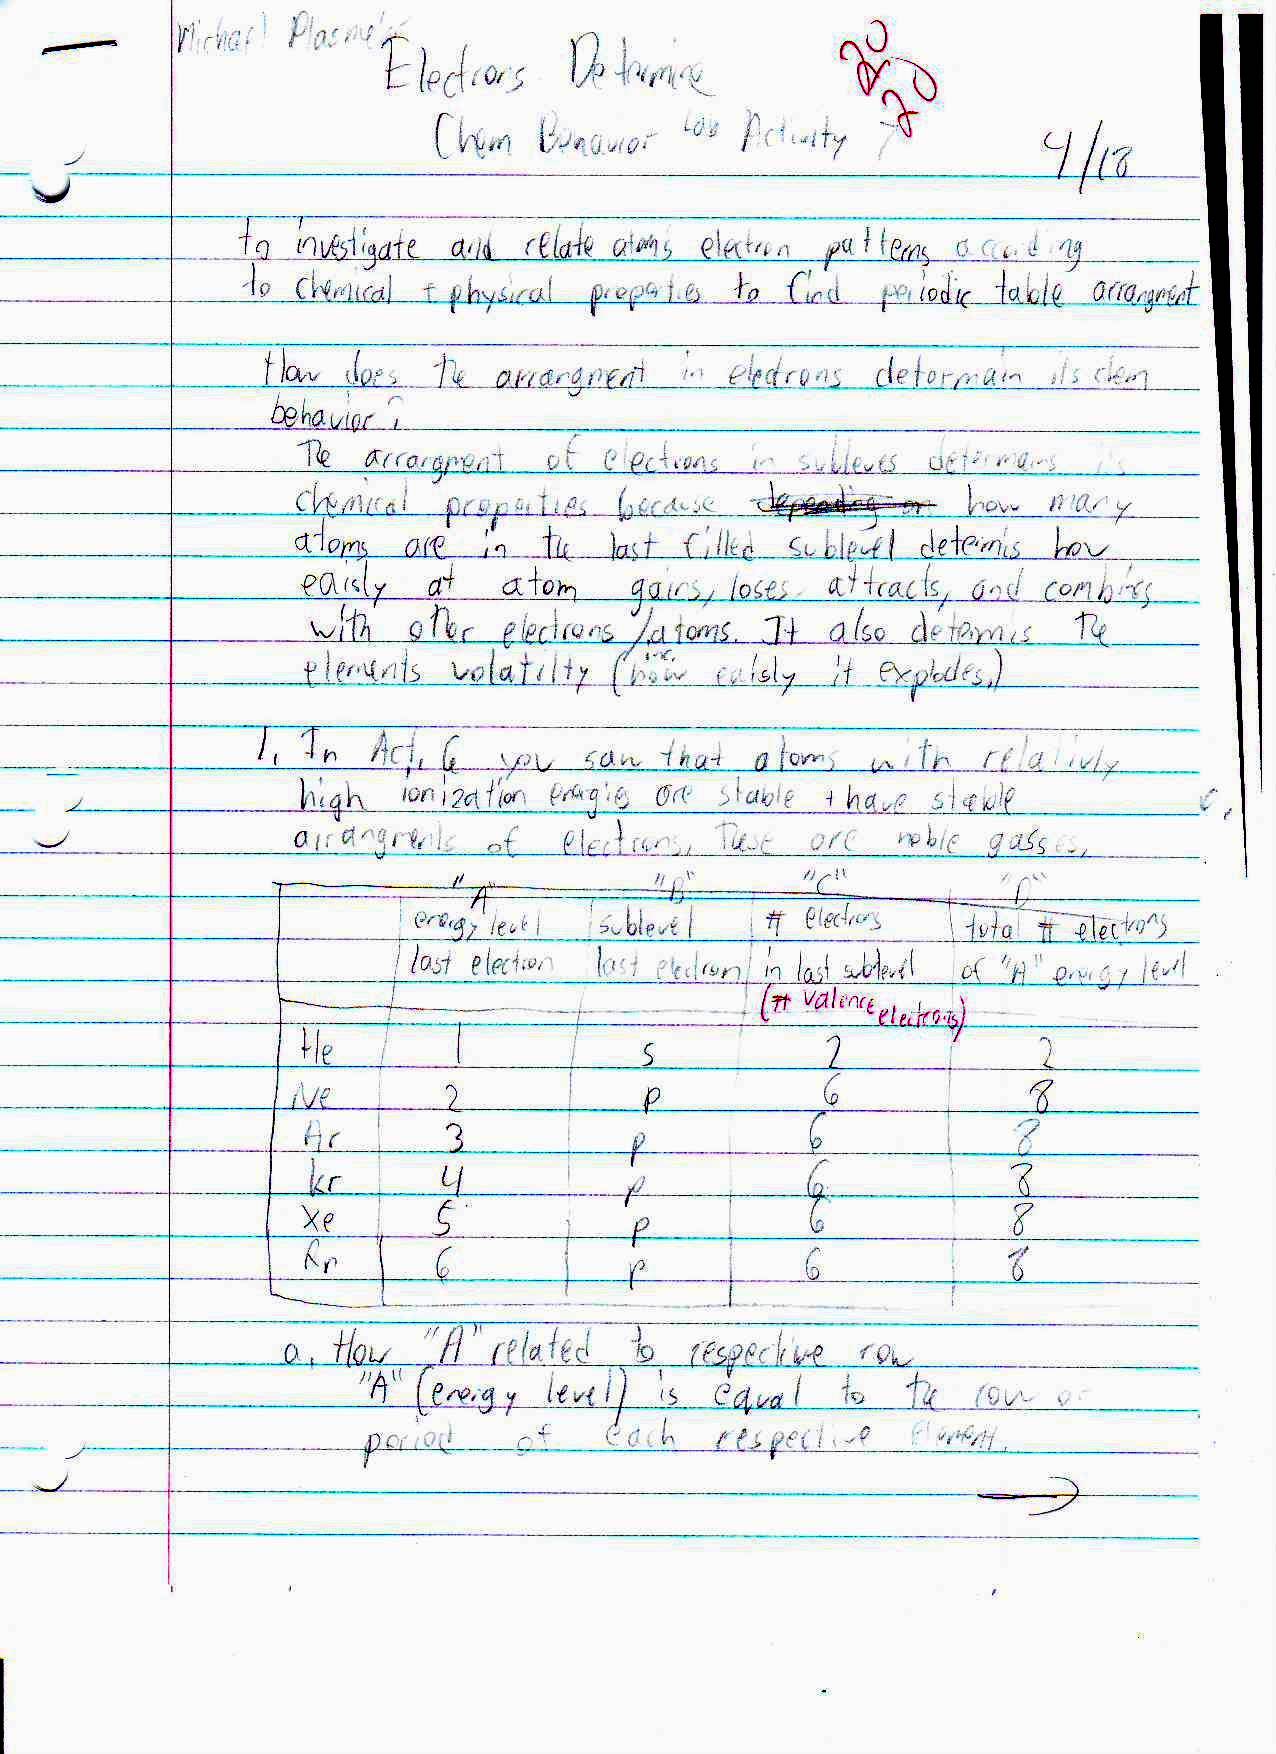 Michael Plasmeier
Electrons Determine
20
20
Chem Behavior Lab Activity 7
4/18
to investigate and relate atoms electron patterns according
to chemical + physical properties to find periodic table arrangment
How does the arrangment in electrons determain its chem
behavior?
The arrargment of electrons in subleves determains its
chemical properties because depending on how many
atoms are in the last filled sublevel determis how
eaisly at atom gains, loses attracts, and combines
with other electrons/atoms. It also determis the
elements volatilty (inc. how eaisly it explodes.)
1. In Act. 6 you saw that atoms with relativly
high ionization energies are stable + have stable
arrangments of electrons, these are noble gasses,
"A" "B" "C" "D"
energy level sublevel # electrons total # electrons
last electron last electron in last sublevel of "A" energy level
(# valence electrons)
He 1 s 2 2
Ne 2 p 6 8
Ar 3 p 6 8
Kr 4 p 6 8
Xe 5 p 6 8
Rn 6 p 6 8
a. How "A" related to respective row
"A" (energy level) is equal to the row or
period of each respective element.